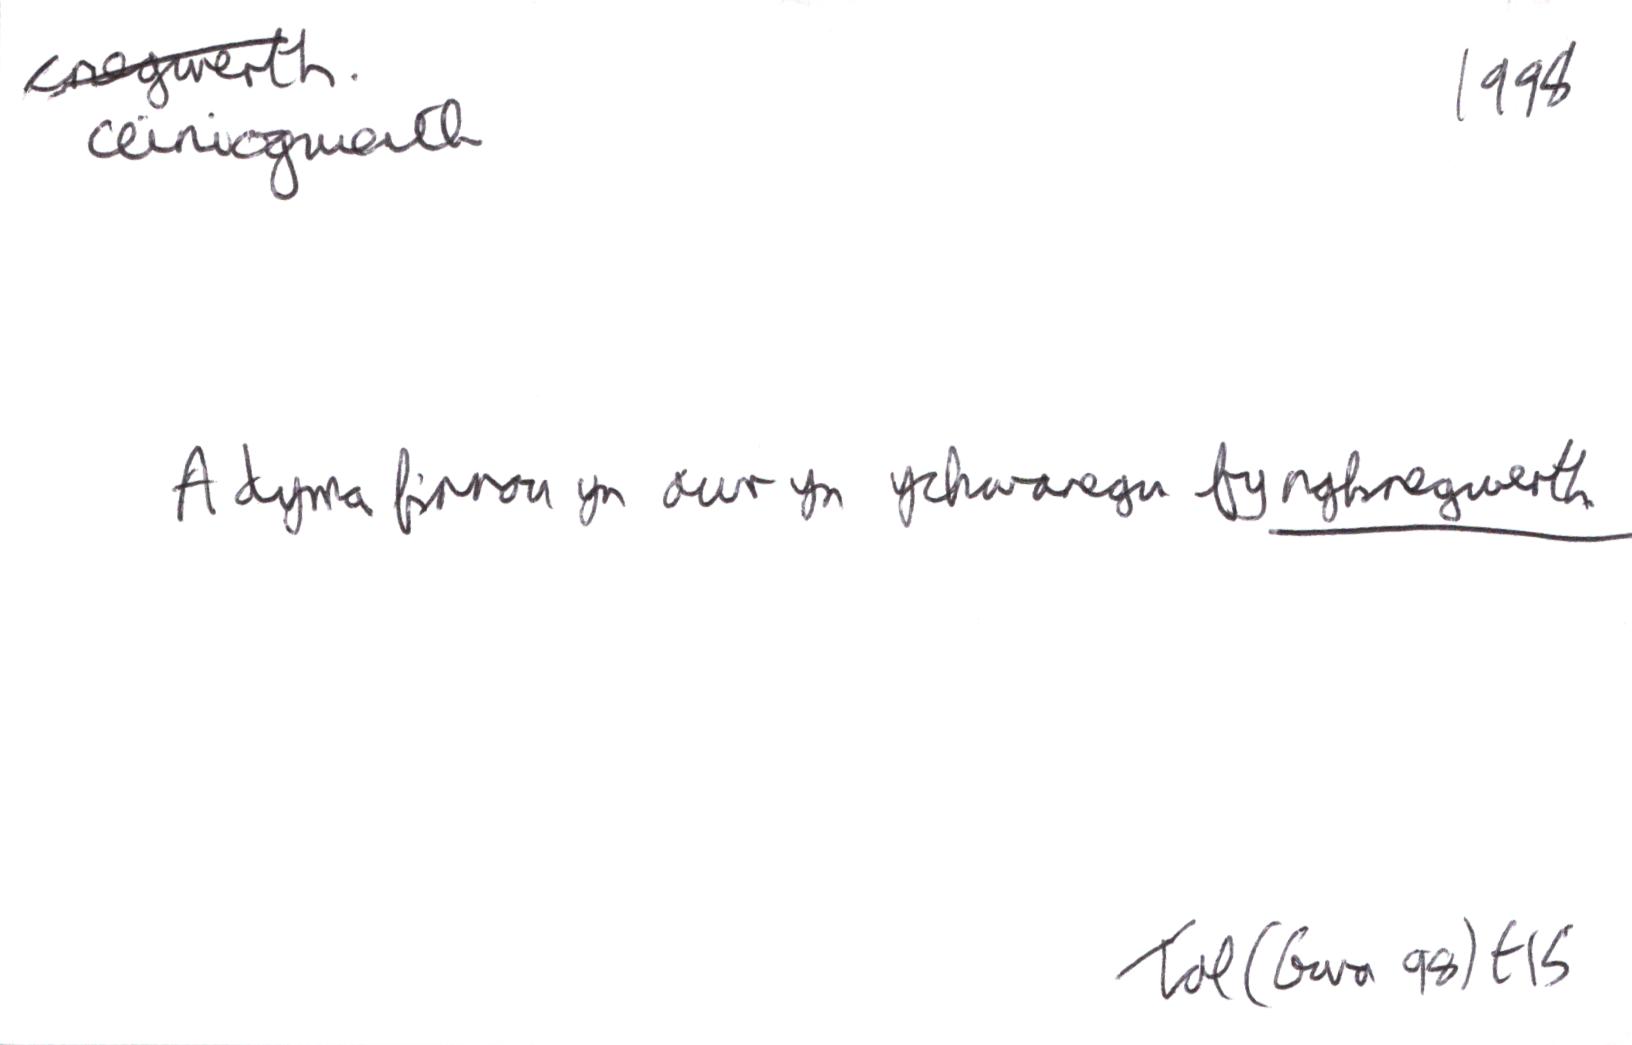 cnegwerth.
ceiniogwerth
1998
A dyma finnau yn awr yn ychwanegu fy nghnegwerth
Tal (Gwa 98) t15